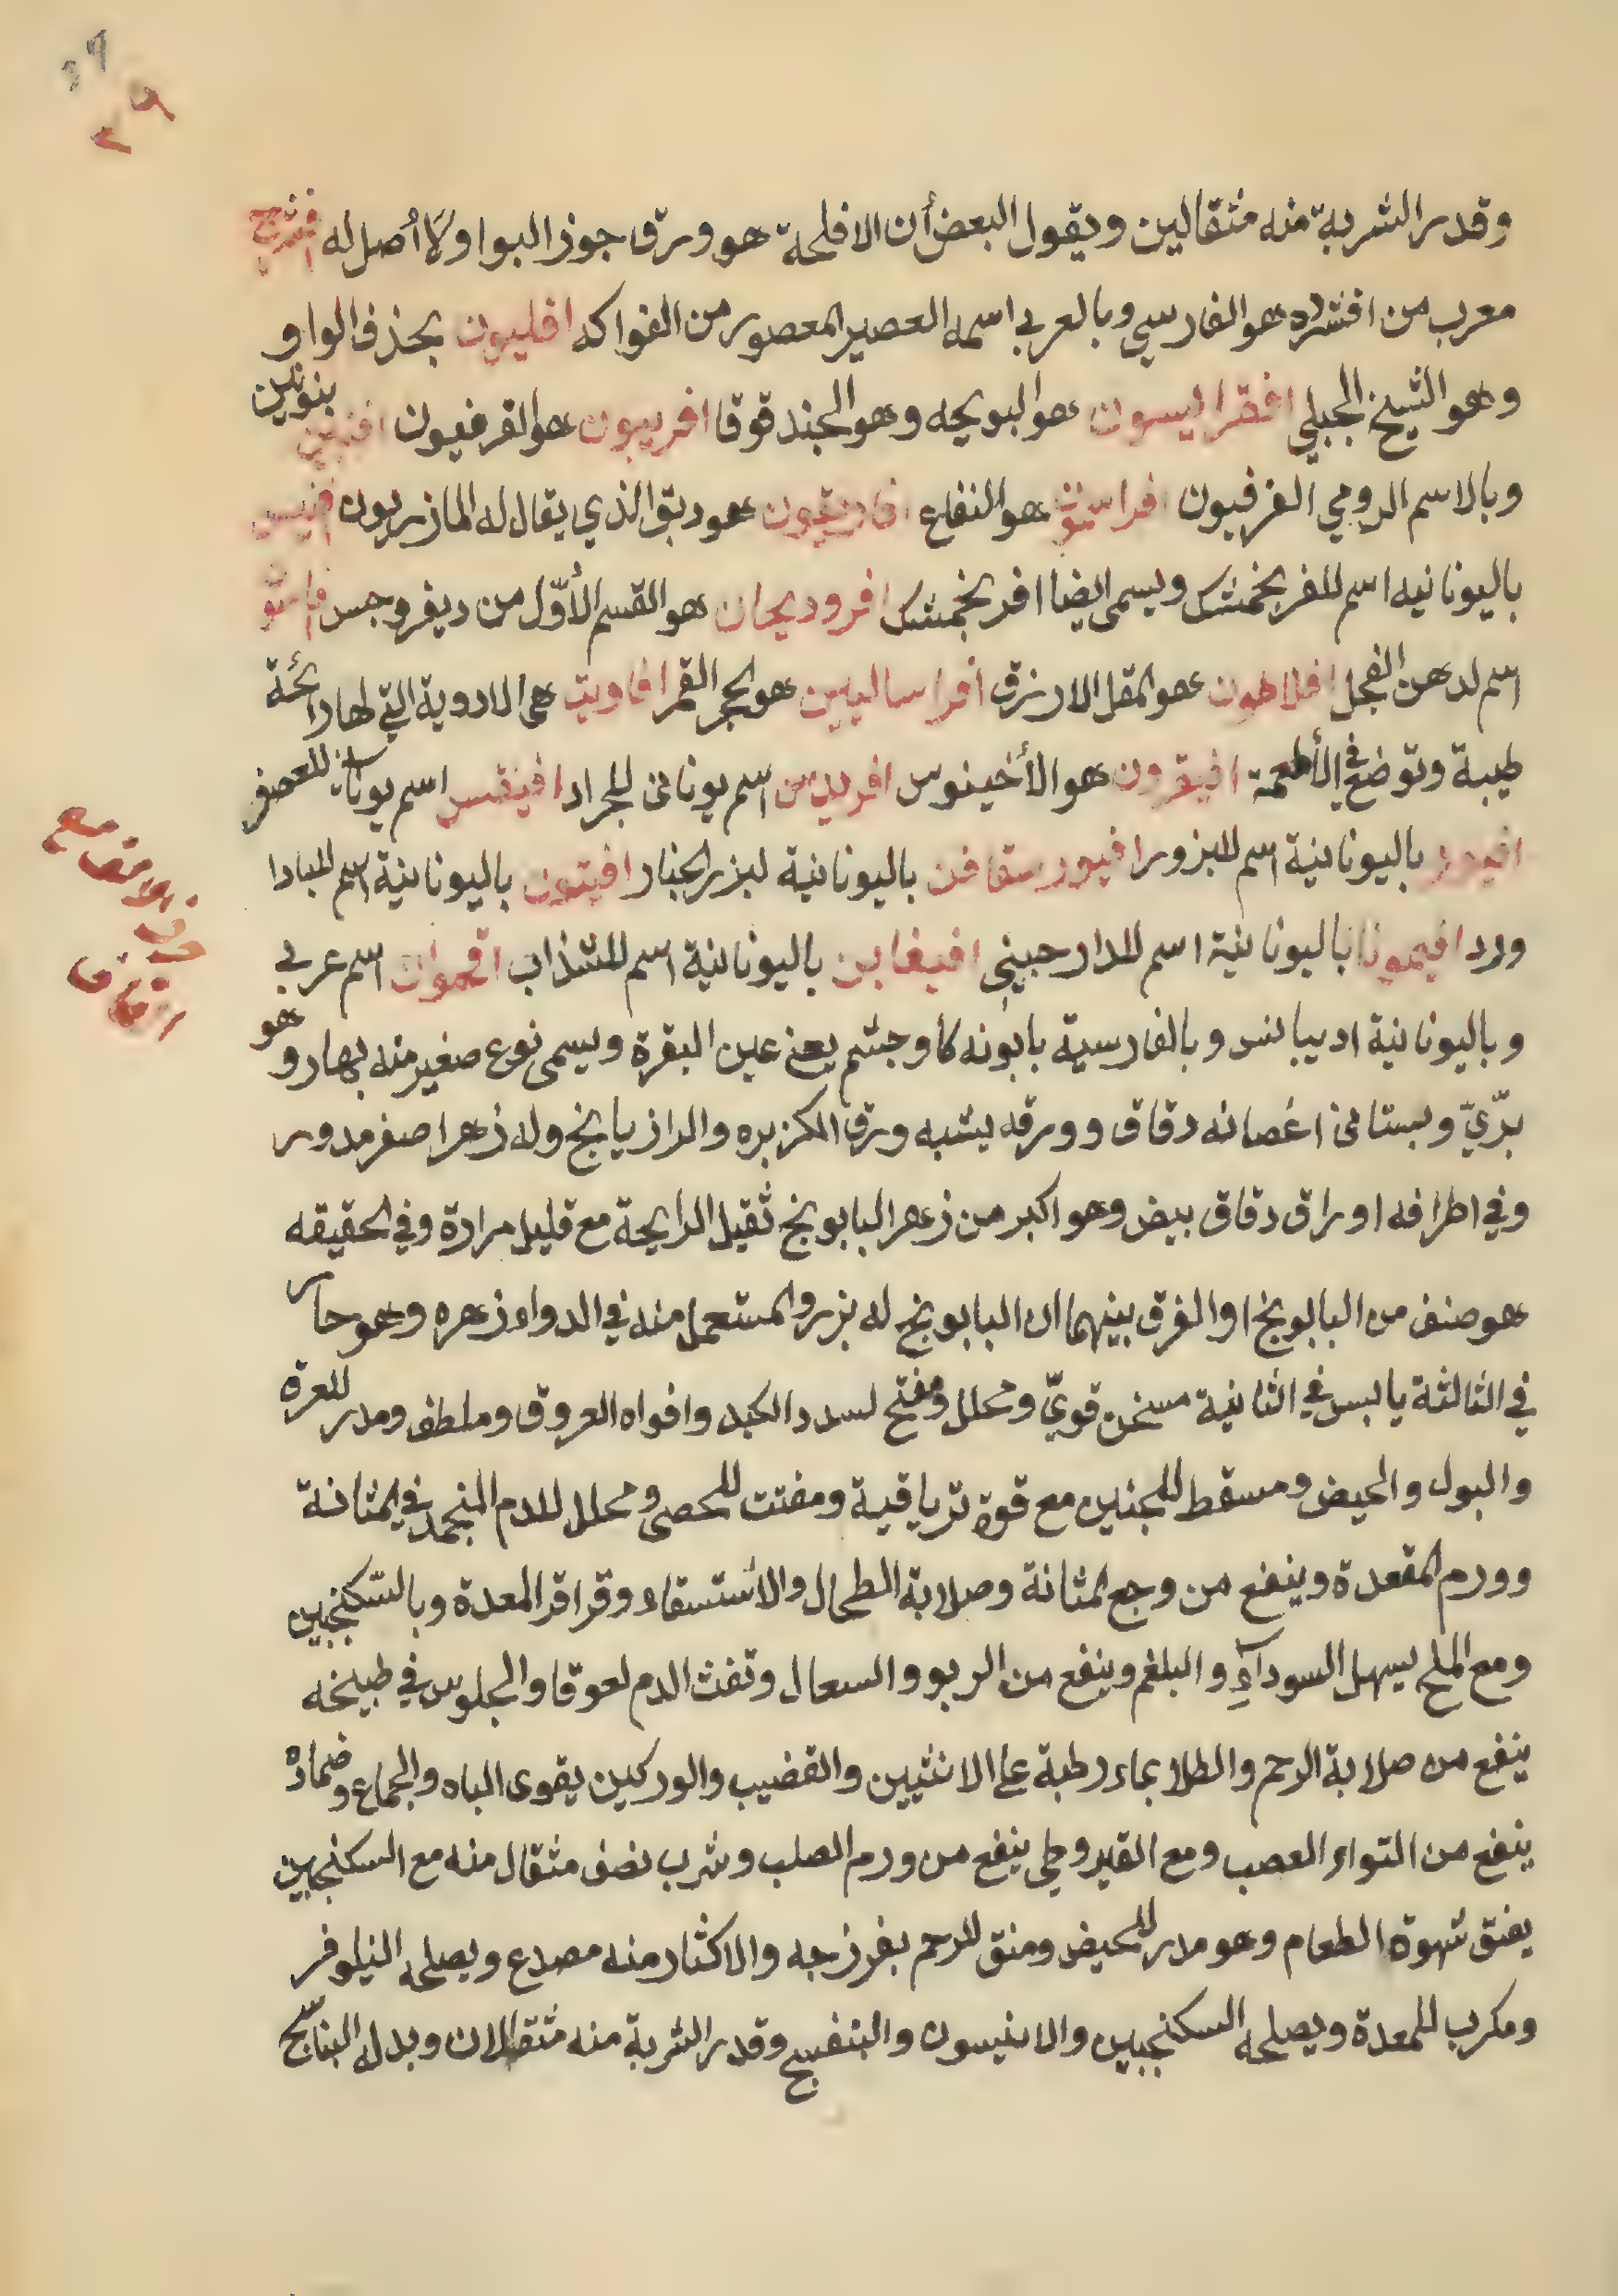 ٢٩
٢٩
وقدر الشربة منه مثقالين ويقول البعض أن الافلحة هو ورق جوز البوا ولا أصل له افشرج
معرب من افشره هو الفارسي وبالعربي اسمه العصير المعصور من الفواكه افليون بحذف الواو
وهو الشيخ الجبلي افقراليسون هو البويحه وهو الجندقوقا افربيون هو القرفيون افربين بنونين
وبالاسم الرومي الفرفيون هو النفاع هو دبق الذي يقال له المازريون
باليونانيه اسم للفربخمشك ويسمى ايضا افربخمشك افروديجان هو القسم الأوّل من ديفروجس
اسم لدهن الفجل افلاطون هو المقل الارزق أفراساليين هو الحجر القمر افاويه هي الادوية التي لها رائحة
طيبة وتوضع في الأطعمة افيقرون هو الأخينوس افريدس اسم يوناني للجراد افينقس اسم يوناني للعصفر
افيور باليونانية اسم للبزور افيورسقافن باليونانية لبزر الخبار افيتون باليونانية اسم للبادا
ورد افيمونا باليونانية اسم للدارجيني افيغابن باليونانية اسم للشذاب اقحوان اسم عربي
وبالیونانية اربيانس وبالفارسية بابونه كأوجشم يعني عين البقرة ويسمى نوع صغير منه بهار وهو
برّيّ وبستاني اغصانه دقاق وورقه يشبه ورق الكزبره والرازيانج وله زهر اصفر مدور
وفي اطرافه اوراق دقاق بيض وهو اكبر من زهر البابونج ثقيل الرايحة مع قليل مرارة وفي الحقيقه
هو صنف من البابونج او الفرق بينهما ان البابونج له بزر والمستعمل منه في الدواء زهره وهو حار
في الثالثة يابس في الثانية مسخن قويّ ومحلل ومفتح لسدد الكبد وافواه العروق وملطف ومدر للعرق
والبول والحيض ومسقط للجنين مع قوة ترياقية ومفتت للحصى ومحلل للدم المنجمد في المثانة
وورم المقعدة وينفع من وجع المثانة وصلابة الطحال والأستسقاء وقراقر المعدة وبالسّكنجبين
ومع الملح يسهل السودآء والبلغم وينفع من الربو والسعال وتفث الدم لعوقا والجلوس في طبيخه
ينفع من صلابة الرحم والطلا بماء رطبة على الانثيين والقضيب والوركين يقوى الباه والجماع وضماده
ينفع من التواء العصب ومع القيروطي ينفع من ورم الصلب وشرب نصف مثقال منه مع السكنجبين
يفتق شهوة الطعام وهو مدر للحيض ومنق للرحم بفرزجه والاكثار منه مصدع ويصلحه النيلوفر
ومكرب للمعدة ويصلحه السكنجبين والانيسون والبنفسج وقدر الشربة منه مثقالان وبدله